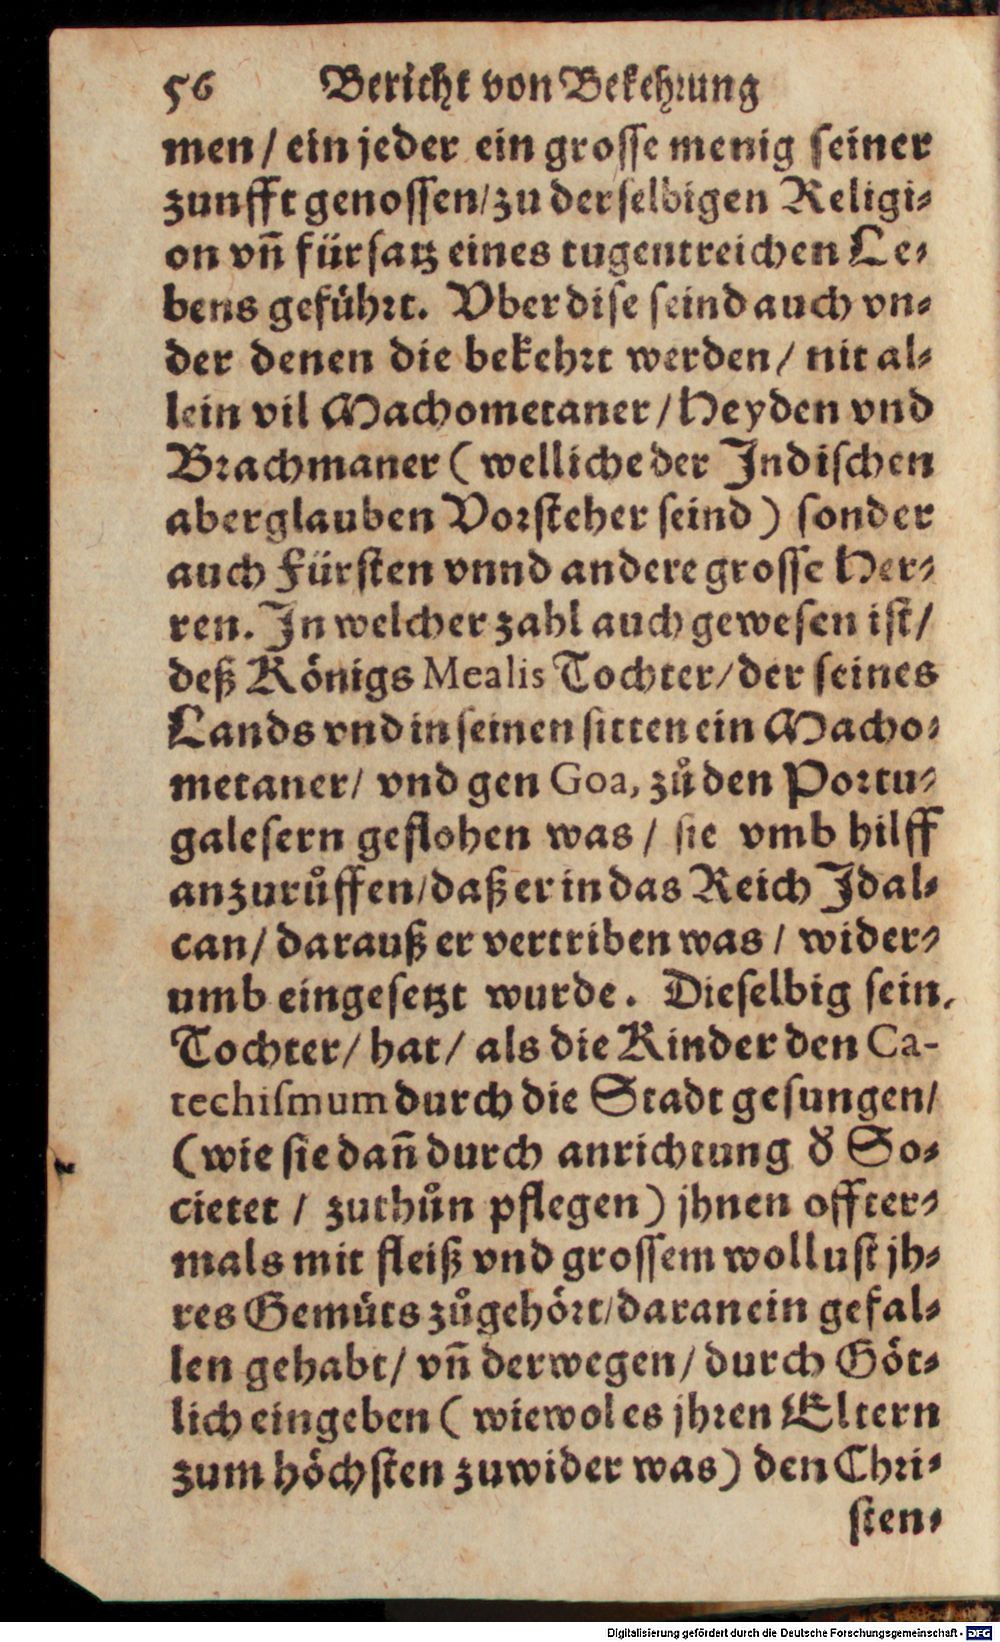 56 Bericht von Bekehrung
men / ein jeder ein grosse menig seiner
zunfft genossen / zu derselbigen Religi-
on vñ fürsatz eines tugentreichen Le-
bens geführt. Vber dise seind auch vn-
der denen die bekehrt werden / nit al-
lein vil Machometaner / Heyden vnd
Brachmaner ( welliche der Indischen
aberglauben Vorsteher seind ) sonder
auch Fürsten vnnd andere grosse Her-
ren. In welcher zahl auch gewesen ist /
deß Königs Mealis Tochter / der seines
Lands vnd in seinen sitten ein Macho-
metaner / vnd gen Goa, zů den Portu-
galesern geflohen was / sie vmb hilff
anzurůffen / daß er in das Reich Idal-
can / darauß er vertriben was / wider-
umb eingesetzt wurde. Dieselbig sein,
Tochter / hat / als die Kinder den Ca-
techismum durch die Stadt gesungen /
( wie sie dañ durch anrichtung d̕ So-
cietet / zuthůn pflegen ) jhnen offter-
mals mit fleiß vnd grossem wollust jh-
res Gemüts zůgehört / daran ein gefal-
len gehabt / vñ derwegen / durch Göt-
lich eingeben ( wiewol es jhren Eltern
zum höchsten zuwider was ) den Chri-
sten-
Digitalisierung gefördert durch die Deutsche Forschungsgemeinschaft - DFG